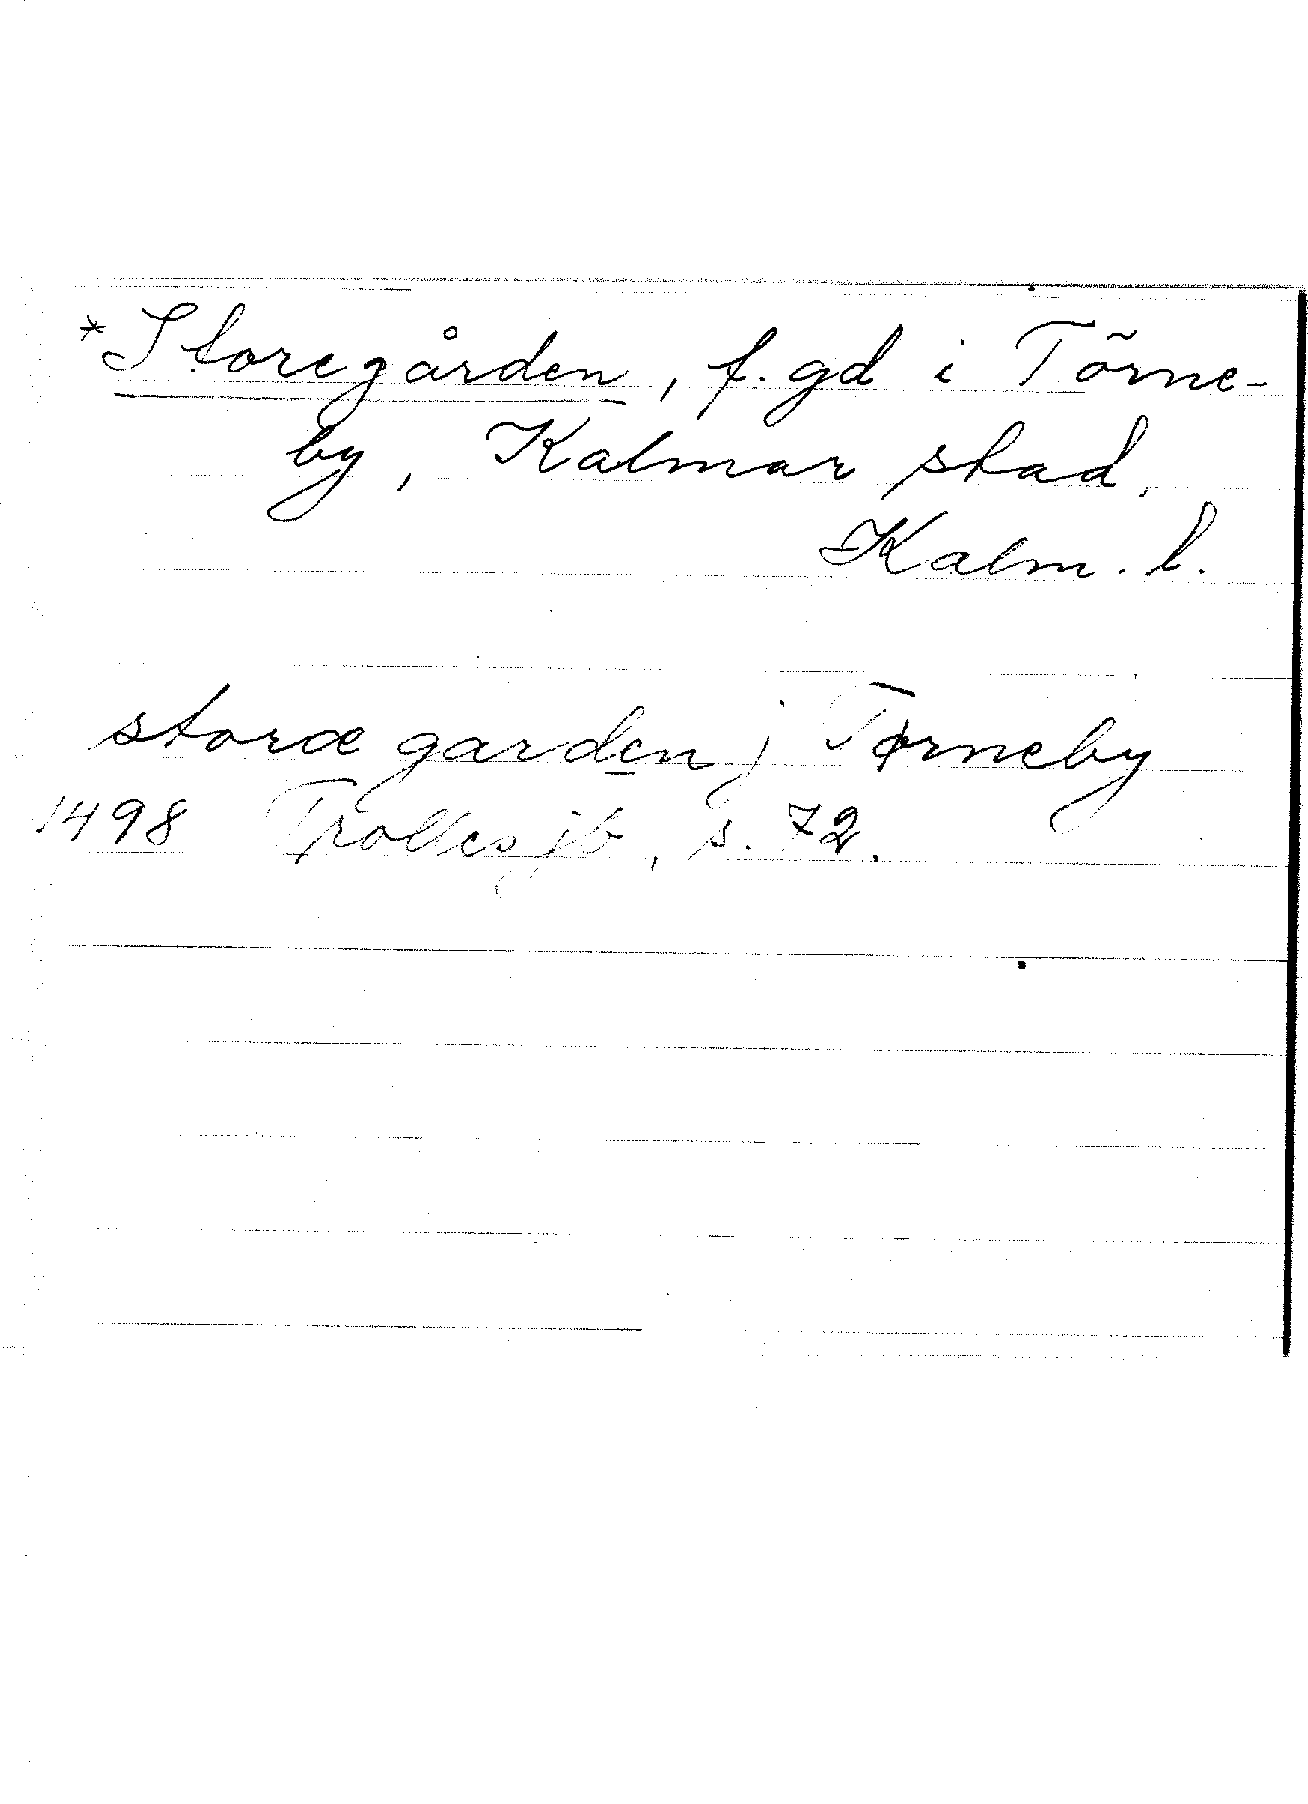 *Storegården, f. gd i Törne-
by, Kalmar stad,
Kalm. l.
storæ garden j Tørneby
1498 Trolles jb, s. 72.